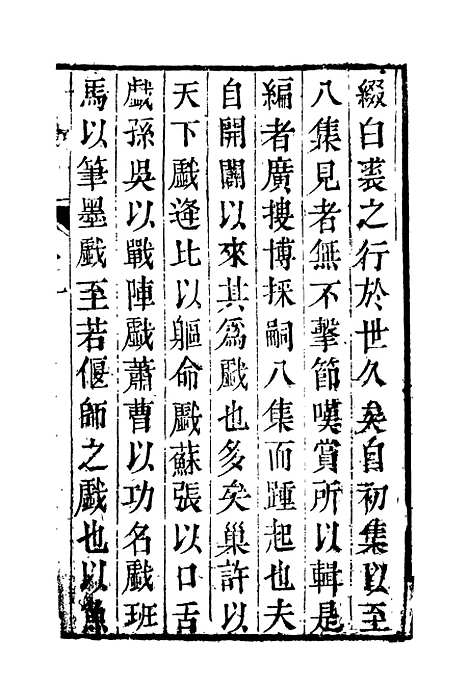 綴白裘之行於世久矣自初集以至
八集見者無不擊節嘆賞所以輯是
編者廣搜博採嗣八集而踵起也夫
自開闢以來其爲戲也多矣巢許以
天下戲逄比以軀命戲蘇張以口舌
戲孫吳以戰陣戲蕭曹以功名戲班
馬以筆墨戲至若偃師之戲也以魚